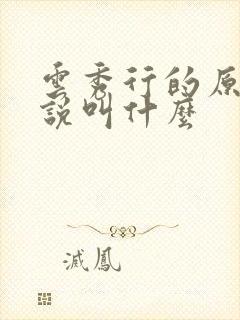 雲秀行的原
說叫什麼
滅鳳